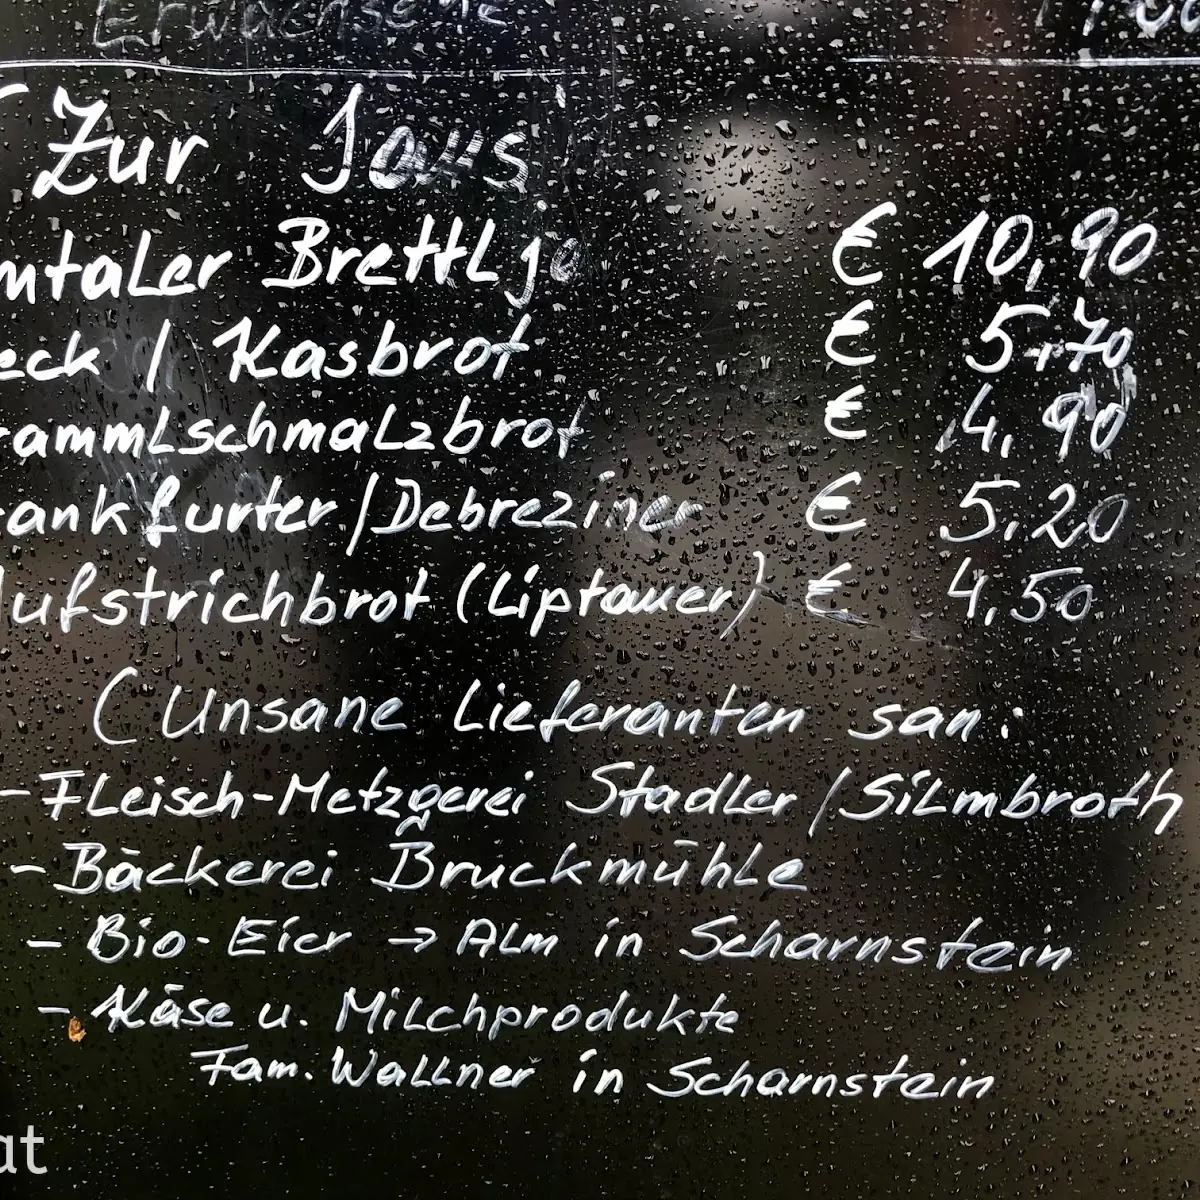 Erwachsene
Zur Jaus
mtaler Brettljo € 10,90
eck / Kasbrot € 5,70
rammlschmalzbrot € 4,90
rankfurter / Debreziner € 5,20
Aufstrichbrot (Liptauer) € 4,50
(Unsane Lieferanten san:
- Fleisch-Metzgerei Stadler / Silmbroth
- Bäckerei Bruckmühle
- Bio-Eier → Alm in Scharnstein
- Käse u. Milchprodukte
Fam. Wallner in Scharnstein
at